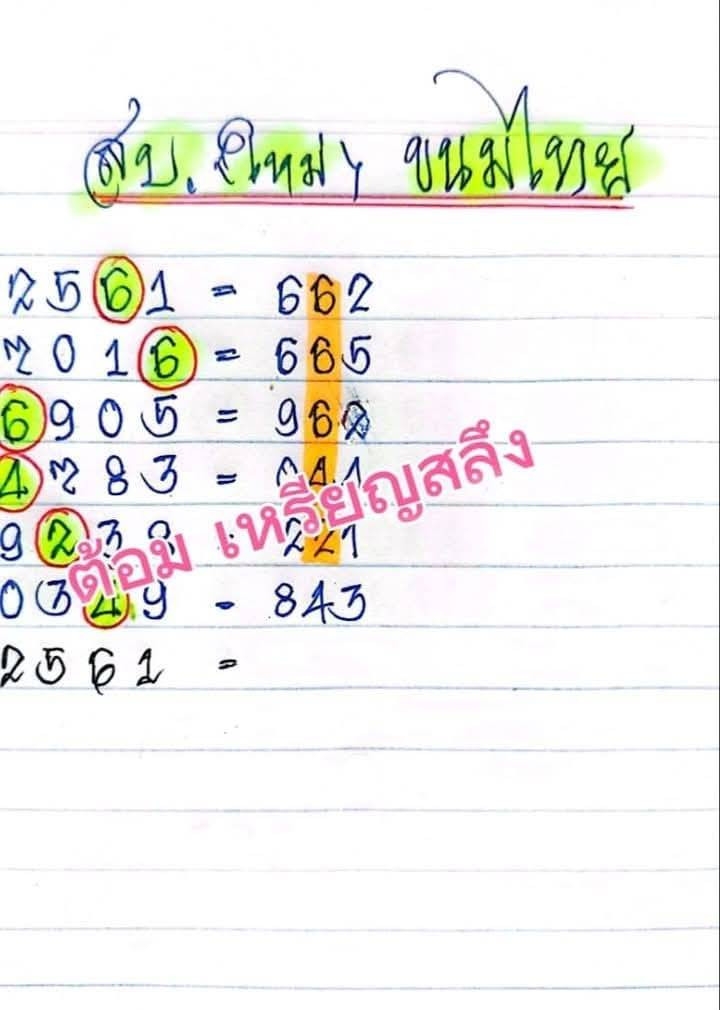 สบ. ใหม่ๆ ขนมไทย
2561 = 662
7016 = 665
6905 = 962
4783 = 441
9239 221
0349 - 843
2561 =
ต้อม เหรียญสลึง